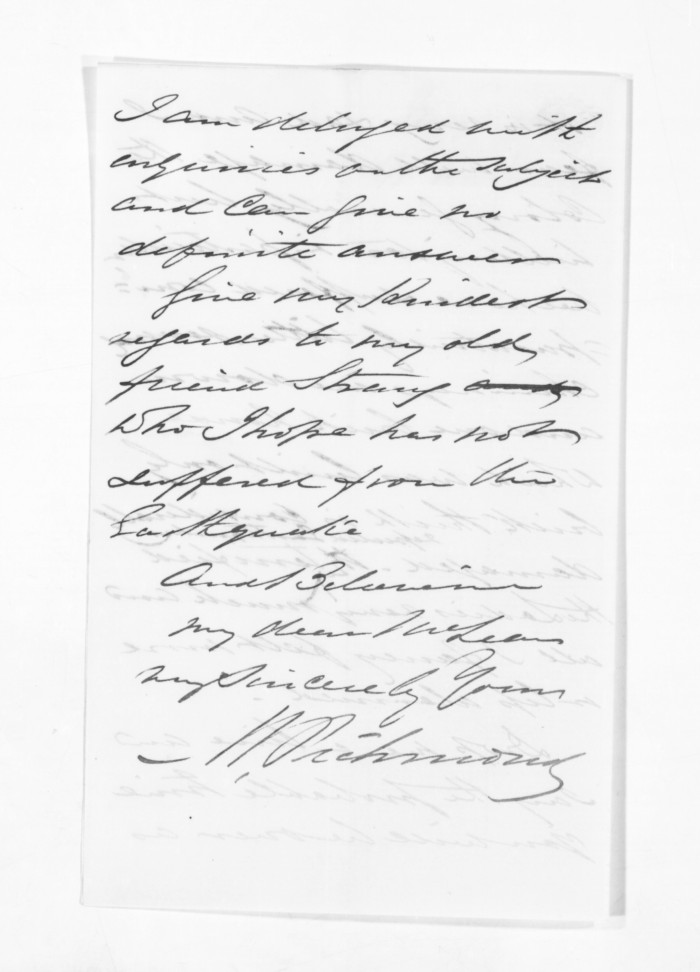 I am deluged with
enquiries on the subject
and can give no
definite answer
Give my Kindest
regards to my old
friend Strang and
who I hope has not
suffered from the
Earthquake
And Believe me
my dear McLean
my sincerely Yours
Richmond